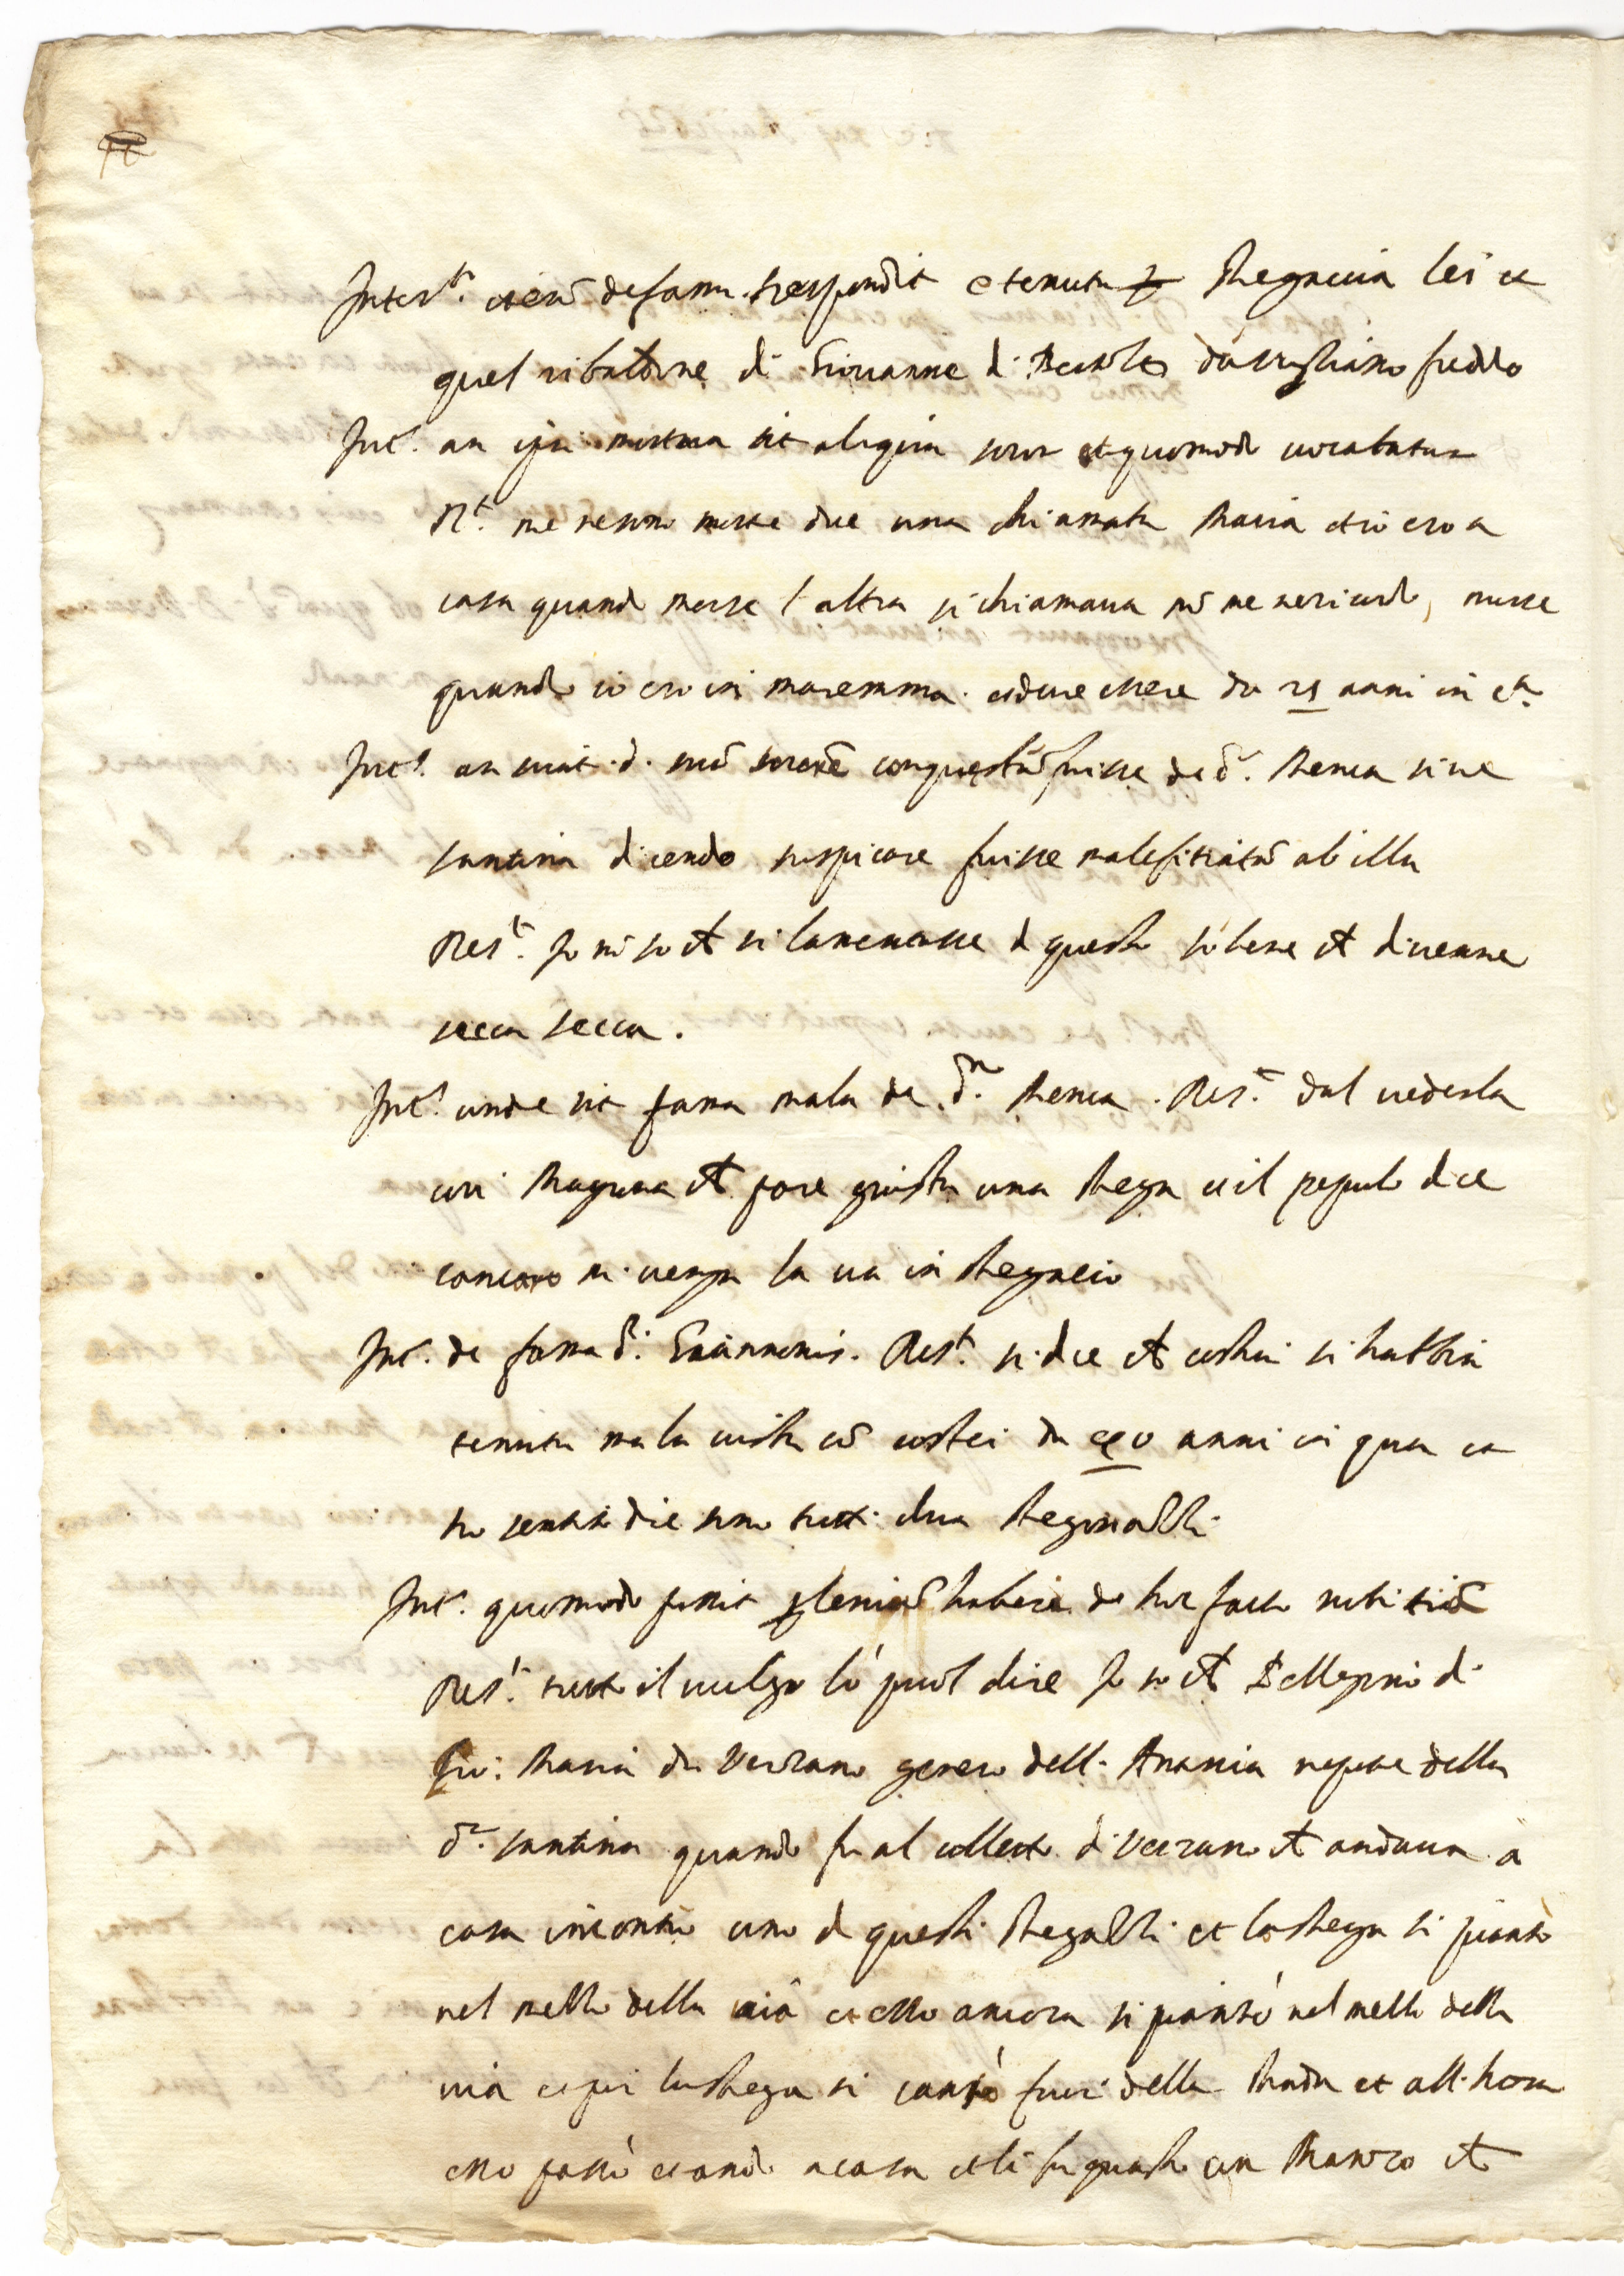 Inter.ta etiam de fama respondit e tenuta p Stregaccia lei et
quel ribaldone di Giovanne di
Int.ta an ipsi mortua sit aliqua soror et quomodo vocabatur
R.t me ne sono morte due una chiamata Maria et io ero a
casa quando morse l altra si chiamava nō me ne ricordo, morse
quando io ero in maremma. et deve essere da 25 anni in ca.
Int.ta an sciat d. suā sororē conquestā fuisse de d.a Menca sive
santina dicendo suspicare fuisse malefitiatā ab illa
Res.t Io nō so che si lamentasse di questo so bene che divenne
secca secca.
Int.ta unde sit fama mala de d.a Menca. Res.t dal vederla
cosi magrona che pare giusto una strega et il populo dice
concorre
Int.ta de fama d.i Giovannis. Res.t si dice che costui si habbia
tenuta mala vista cō costei da anni in qua et
ho sentito dire sono tutti dua stregonacci
Int.ta quomodo possit pleniorē habere de hoc facto notitiā
Res.t tutto il vulgo lo può dire Io so che Pellegrino di
Gio: Maria da Verzano genero dell Anania nepote della
d.a santina quando fu al colletto di Verzano che andava a
casa incontrò una di queste stregacci et la strega si piantò
nel mezzo della via et esso ancora si piantò nel mezzo della
via et poi la strega si cansò fuori della strada et all hora
esso passò et andò a casa et li fu guasto un manzo che